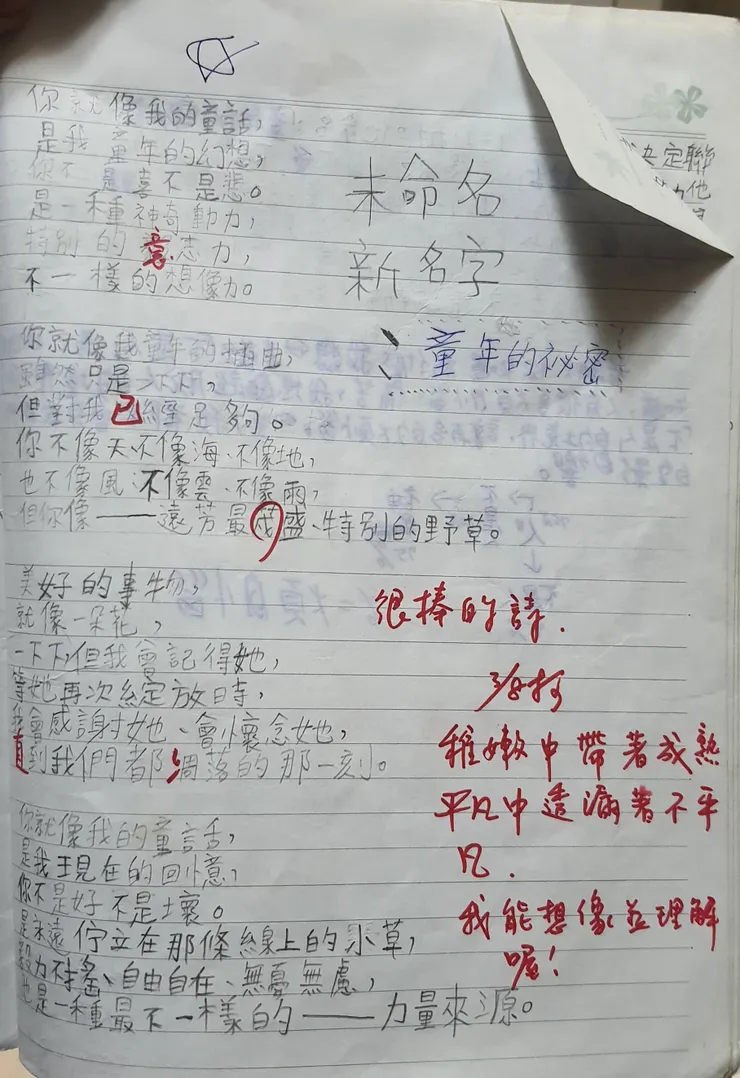 你就像我的童話，
是我童年的幻想，
你不是喜不是悲。
是一種神奇動力，
特別的意志力，
不一樣的想像力。
未命名
新名字
童年的祕密
決定聯
力他
你就像我童年的插曲，
雖然只是一下下，
但對我已經足夠。
你不像天、不像海、不像地，
也不像風、不像雲、不像雨，
但你像——遠芳最茂盛、特別的野草。
美好的事物，
就像一朵花，
一下下，但我會記得她，
等她再次綻放時，
我會感謝她、會懷念她，
直到我們都凋落的那一刻。
很棒的詩.
3/8 柯
稚嫩中帶著成熟
平凡中透漏著不平
凡.
我能想像並理解
喔！
你就像我的童話，
是我現在的回憶，
你不是好不是壞。
是永遠佇立在那條線上的小草，
毅力不搖、自由自在、無憂無慮，
也是一種最不一樣的——力量來源。